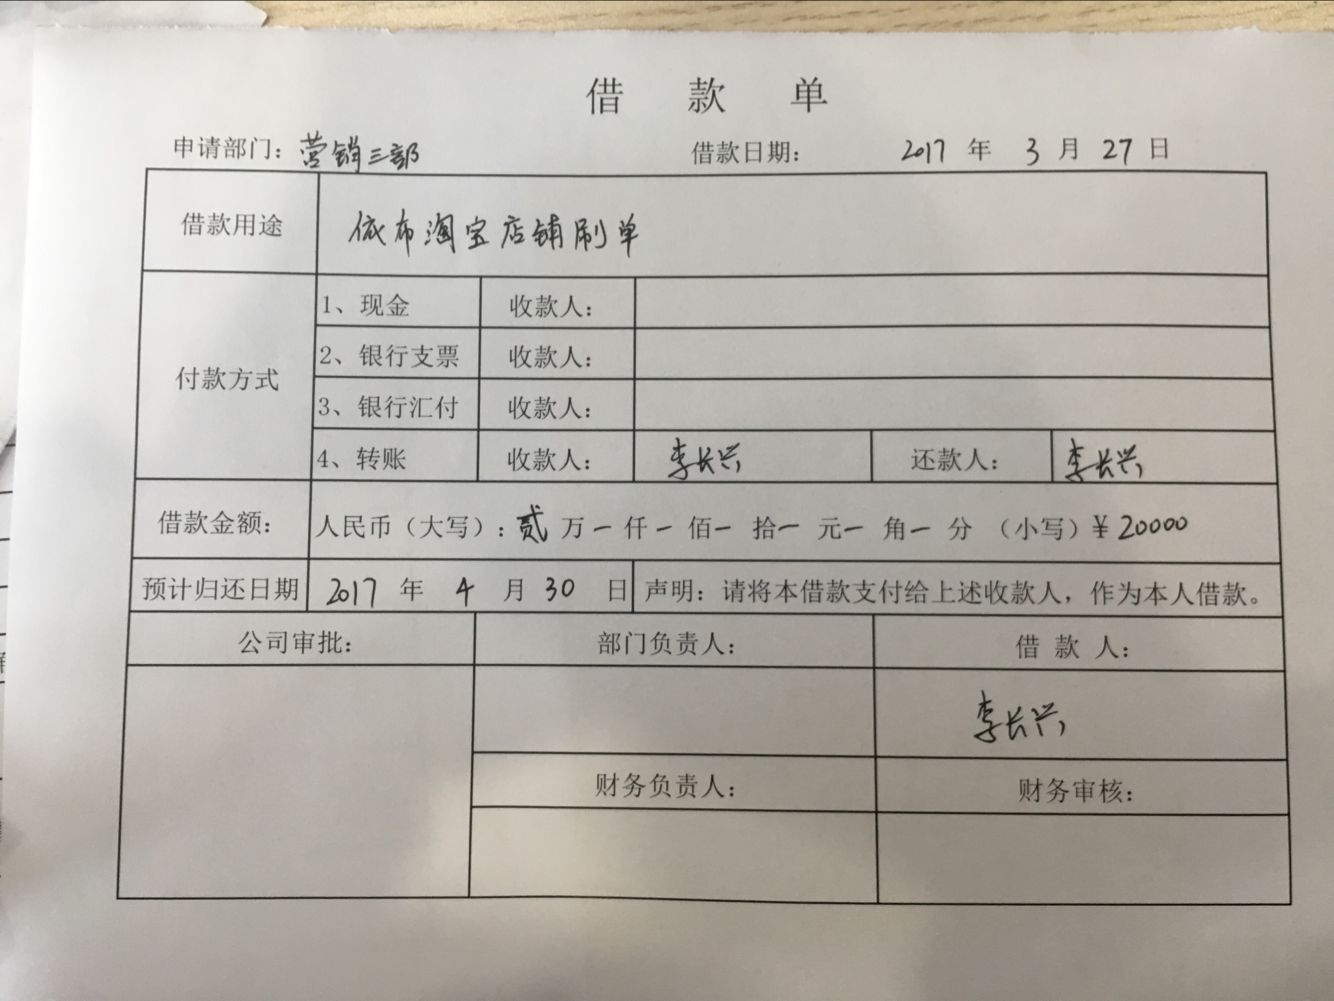 借 款 单
申请部门：营销三部 借款日期： 2017 年 3 月 27 日
借款用途 依布淘宝店铺刷单
付款方式 1、现金 收款人：
2、银行支票 收款人：
3、银行汇付 收款人：
4、转账 收款人： 李长兴 还款人： 李长兴
借款金额： 人民币（大写）：贰 万 一 仟 一 佰 一 拾 一 元 一 角 一 分 （小写）¥ 20000
预计归还日期 2017 年 4 月 30 日 声明：请将本借款支付给上述收款人，作为本人借款。
公司审批： 部门负责人： 借 款 人：
李长兴
财务负责人： 财务审核：